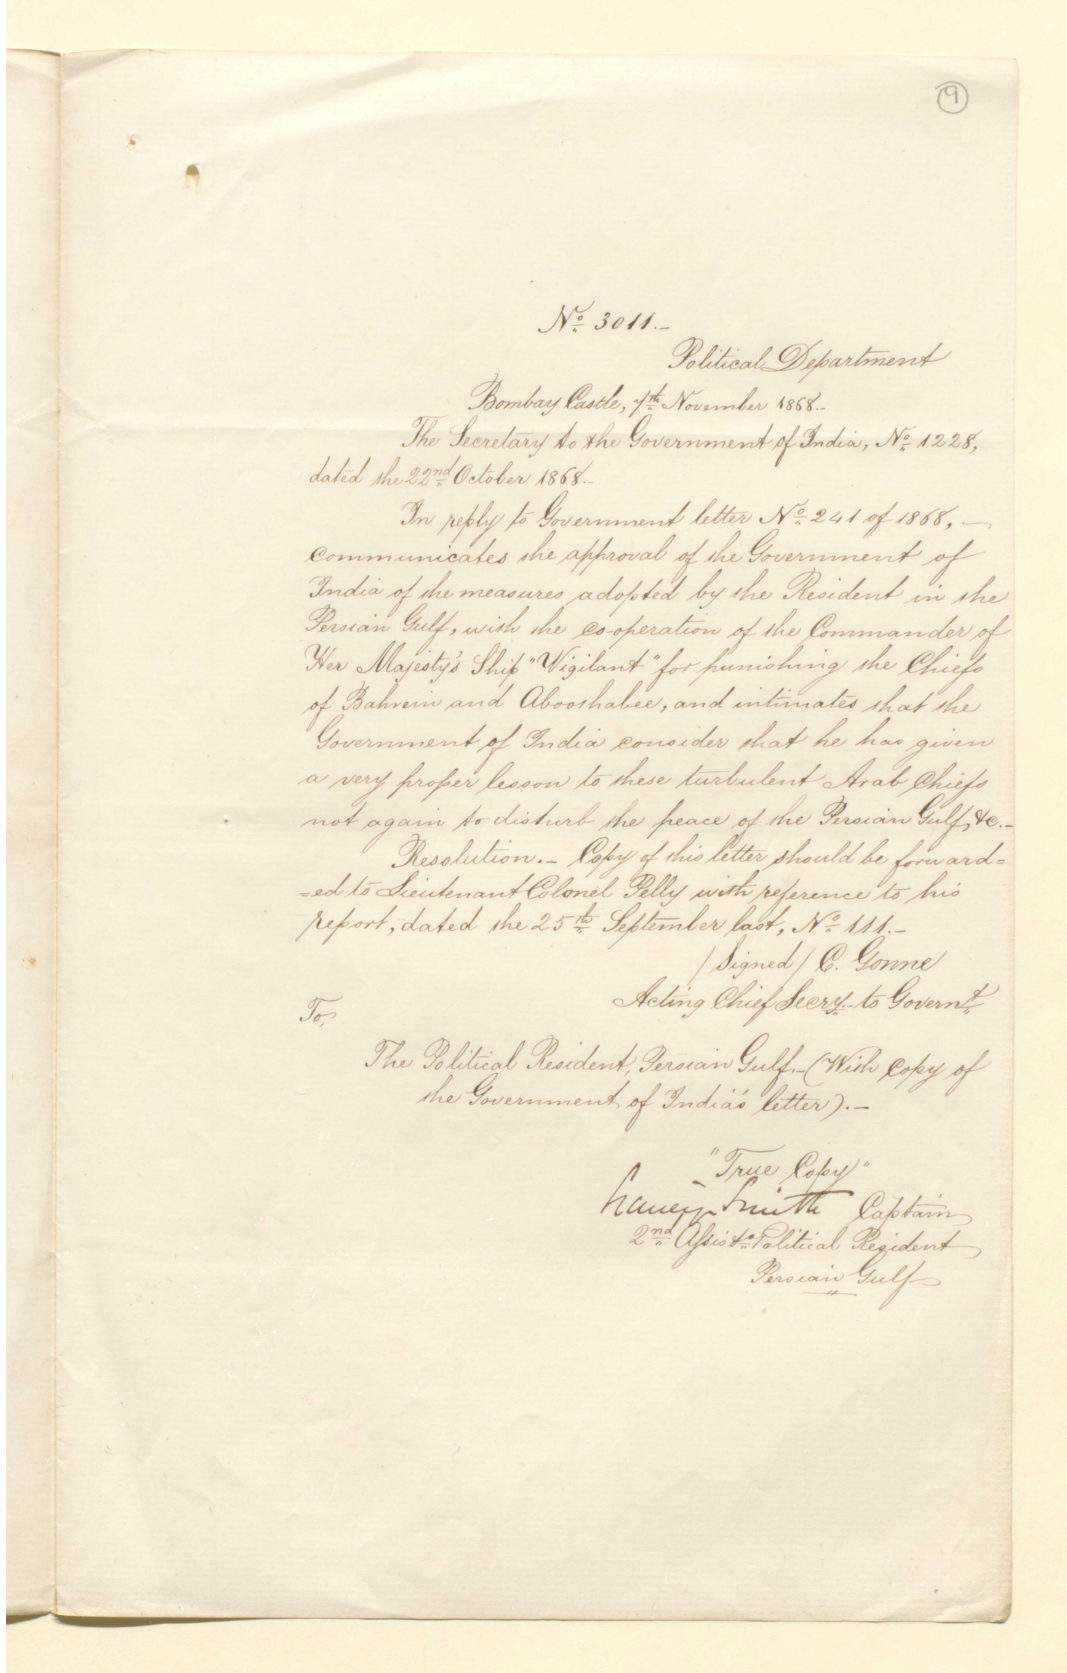 9
No. 3011._
Political Department
Bombay Castle, 7th November 1868._
The Secretary to the Government of India, No. 1228,
dated the 22nd October 1868._
In reply to Government letter No. 241 of 1868, _
communicates the approval of the Government of
India of the measures adopted by the Resident in the
Persian Gulf, with the co-operation of the Commander of
Her Majesty's Ship "Vigilant" for punishing the Chiefs
of Bahrein and Abooshabee, and intimates that the
Government of India consider that he has given
a very proper lesson to these turbulent Arab Chiefs
not again to disturb the peace of the Persian Gulf, &c._
Resolution._ Copy of this letter should be forward=
=ed to Lieutenant Colonel Pelly with reference to his
report, dated the 25th September last, No. 111._
/Signed/ C. Gonne
Acting Chief Secry. to Governt.
To,
The Political Resident, Persian Gulf._ (With copy of
the Government of India's letter)._
"True Copy"
Smith Captain
2nd Assist. Political Resident
Persian Gulf